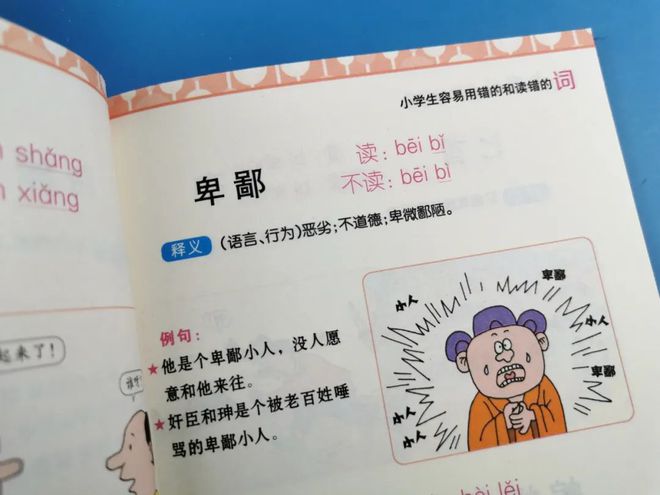 小学生容易用错的和读错的词
shǎng
xiǎng
卑鄙
读：bēi bǐ
不读：bēi bì
释义 （语言、行为）恶劣；不道德；卑微鄙陋。
例句：
★他是个卑鄙小人，没人愿
意和他来往。
★奸臣和珅是个被老百姓唾
骂的卑鄙小人。
小人
卑鄙
小人
卑鄙
小人
小人
起来了！
lěi